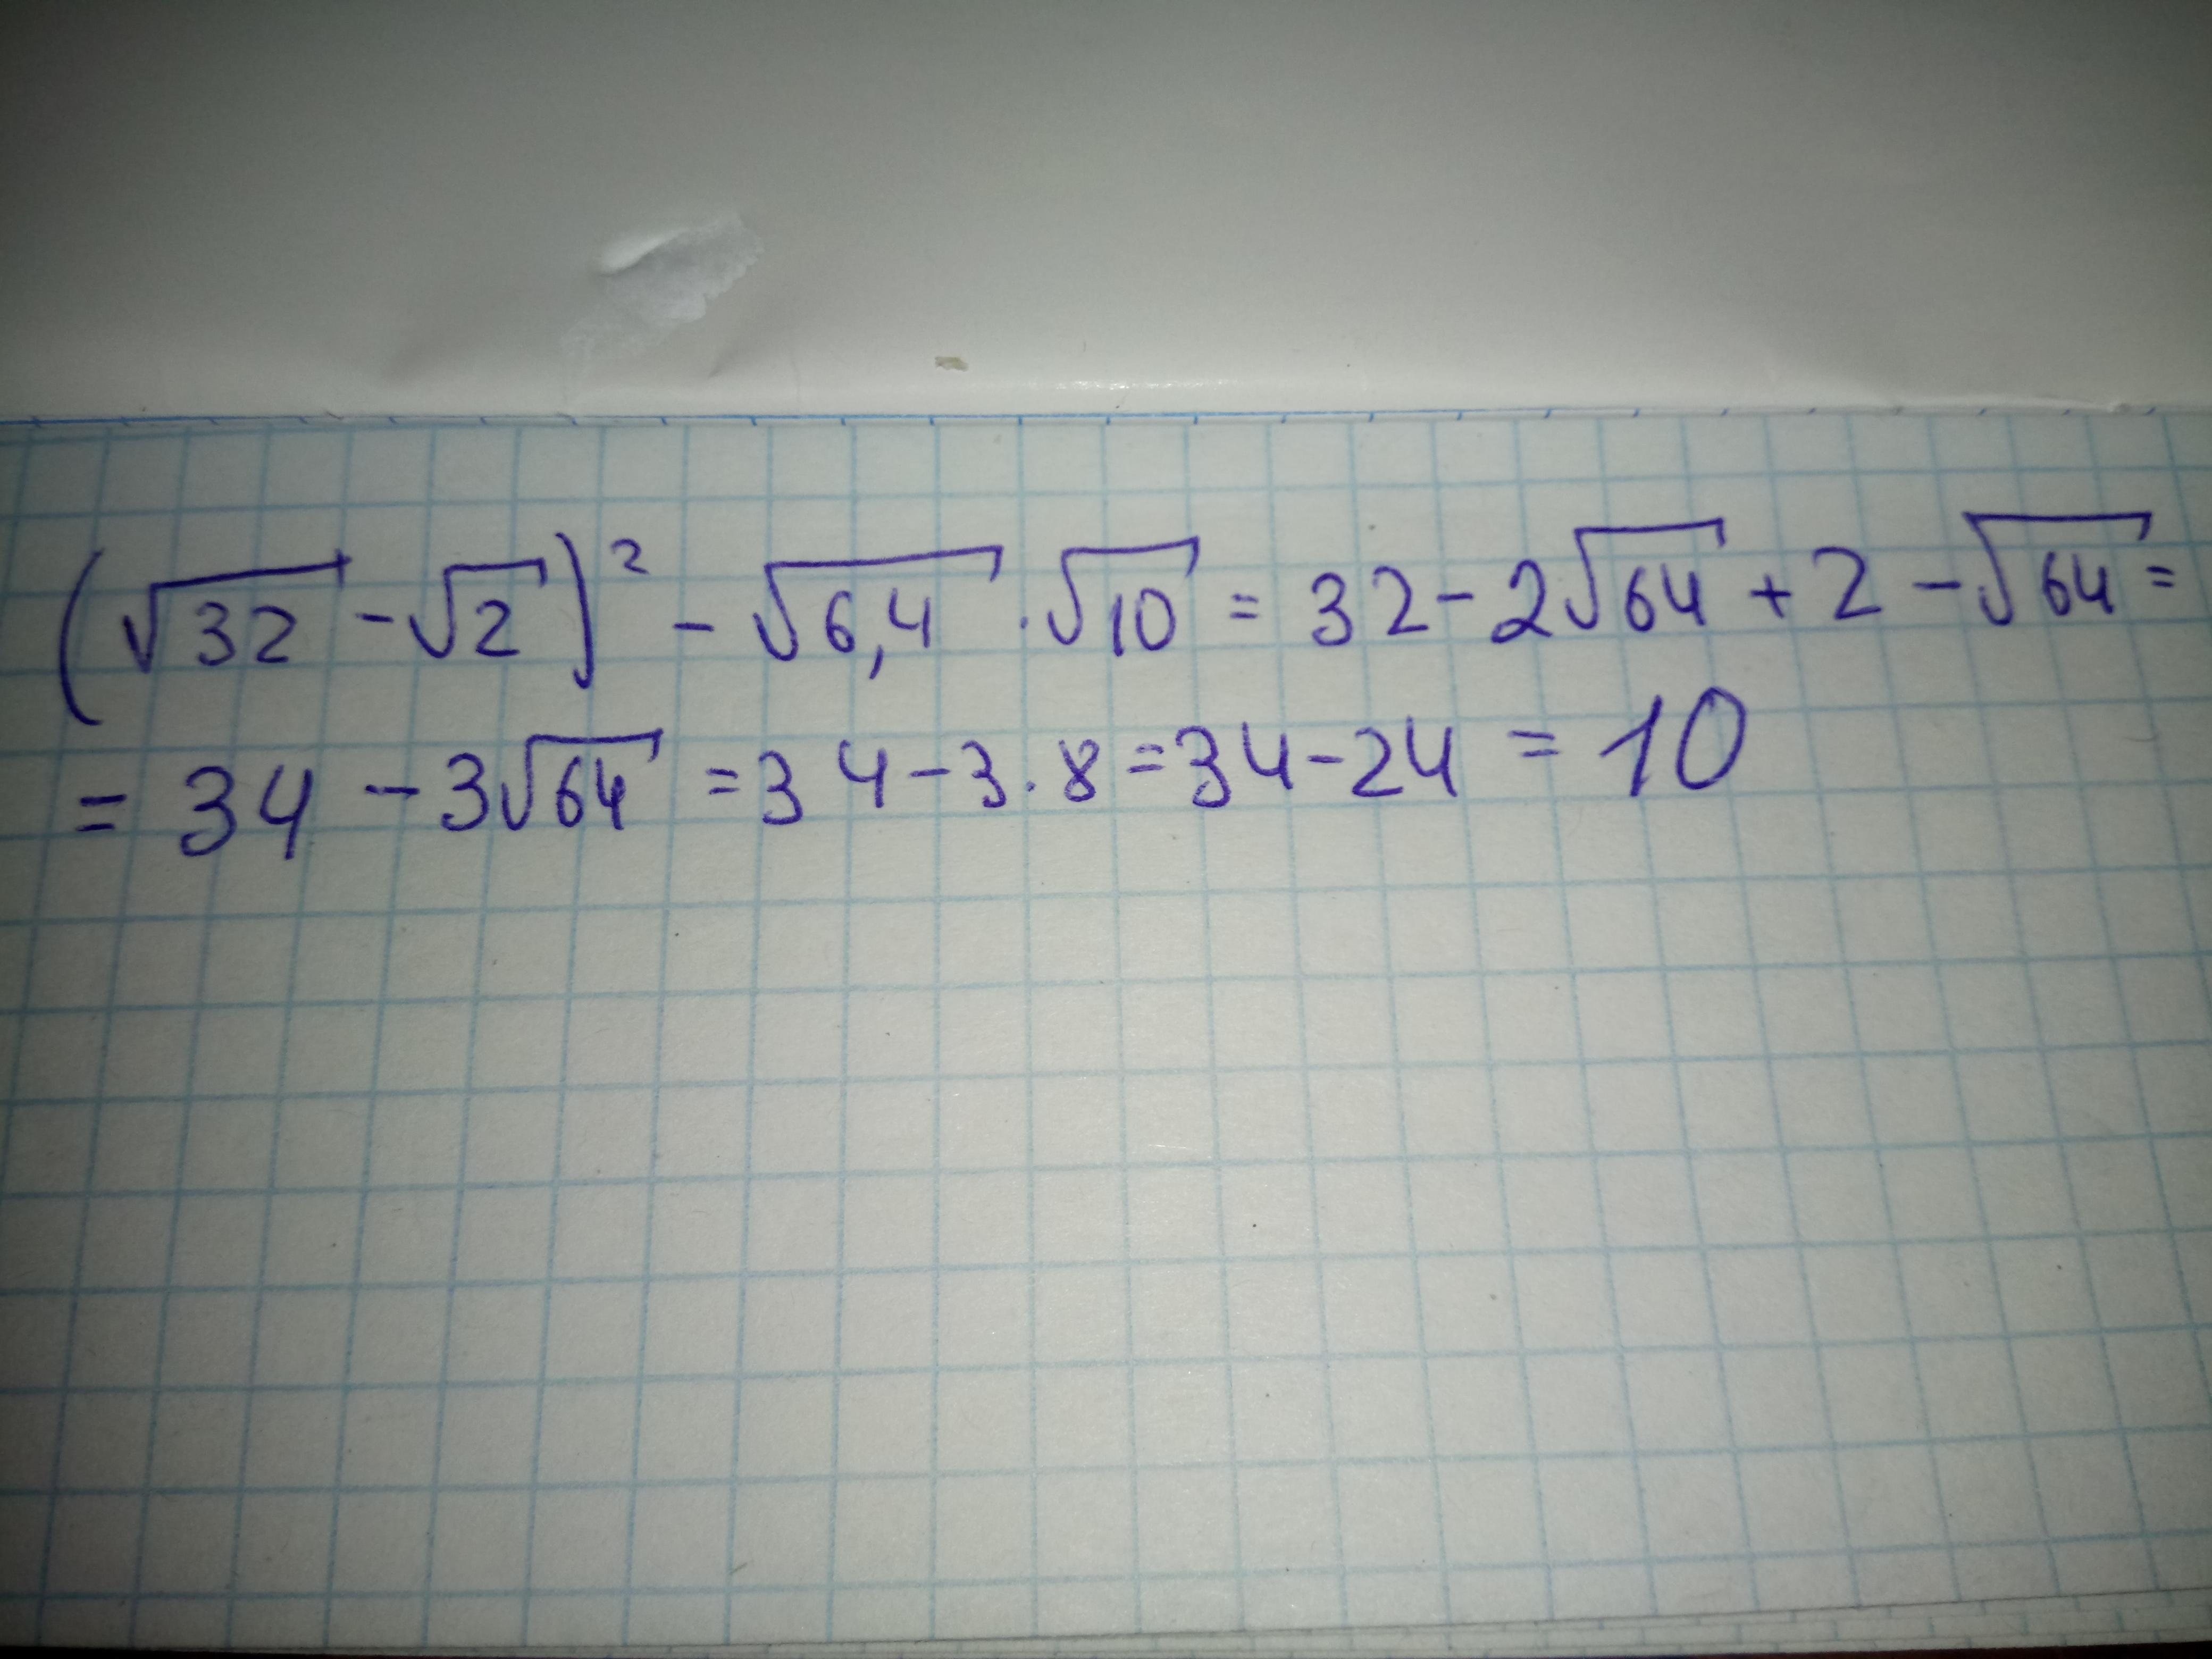 (√32 - √2)² - √6,4 · √10 = 32 - 2√64 + 2 - √64 =
= 34 - 3√64 = 34 - 3 · 8 = 34 - 24 = 10